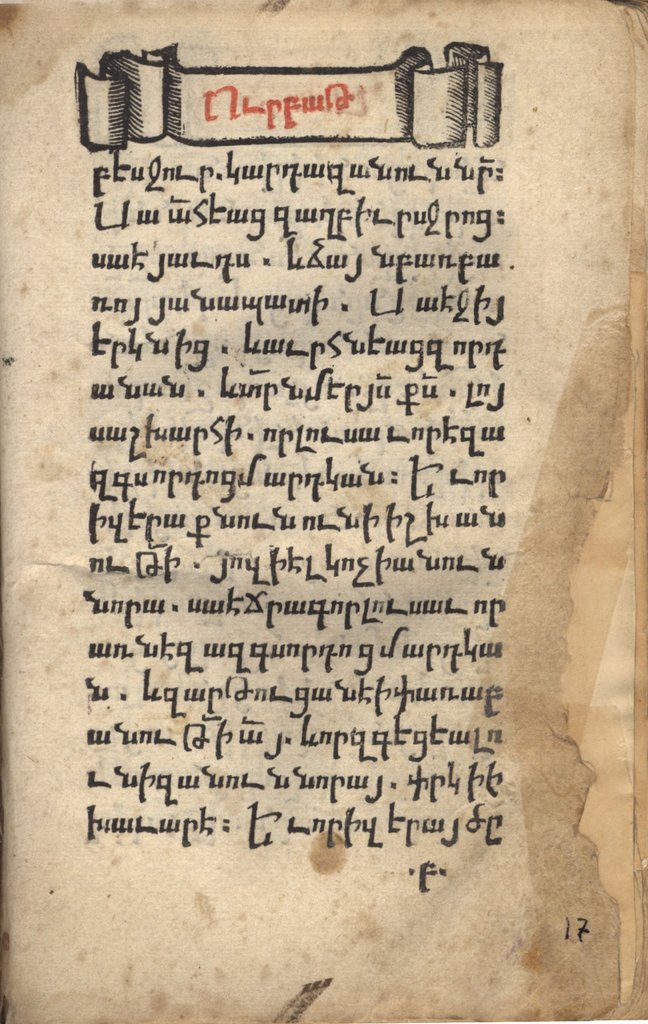 Ուրբաթ
բէսջուր. կարդազանունն ր̃:
Սա ա̃տեացզաղբիւրսջրոց:
սաէյաւդս. և ձայնբառբա
ռոյ յանապատի. Սա էջիյ
երկնից. և աւրհնեացզորդ
անան. և տ̃րն մերյս̃ ք̃ս. լոյ
սաշխարհի. որլուսաւորեզա
զգսորդոցմարդկան: Եւոր
իվերաք նունունիիշխան
ութ̃ի. յովիէլ կոչիանուն
նորա. սաէճրագորլուսաւոր
առնեզազգսորդոցմարդկա
ն. և զարթուցանէիփառաբ
անութ̃ի ա̃յ. և որզգեցեալո
ւնիզանուննորայ. փրկիի
խաւարէ: Եւորիվերայծը
.բ.
17